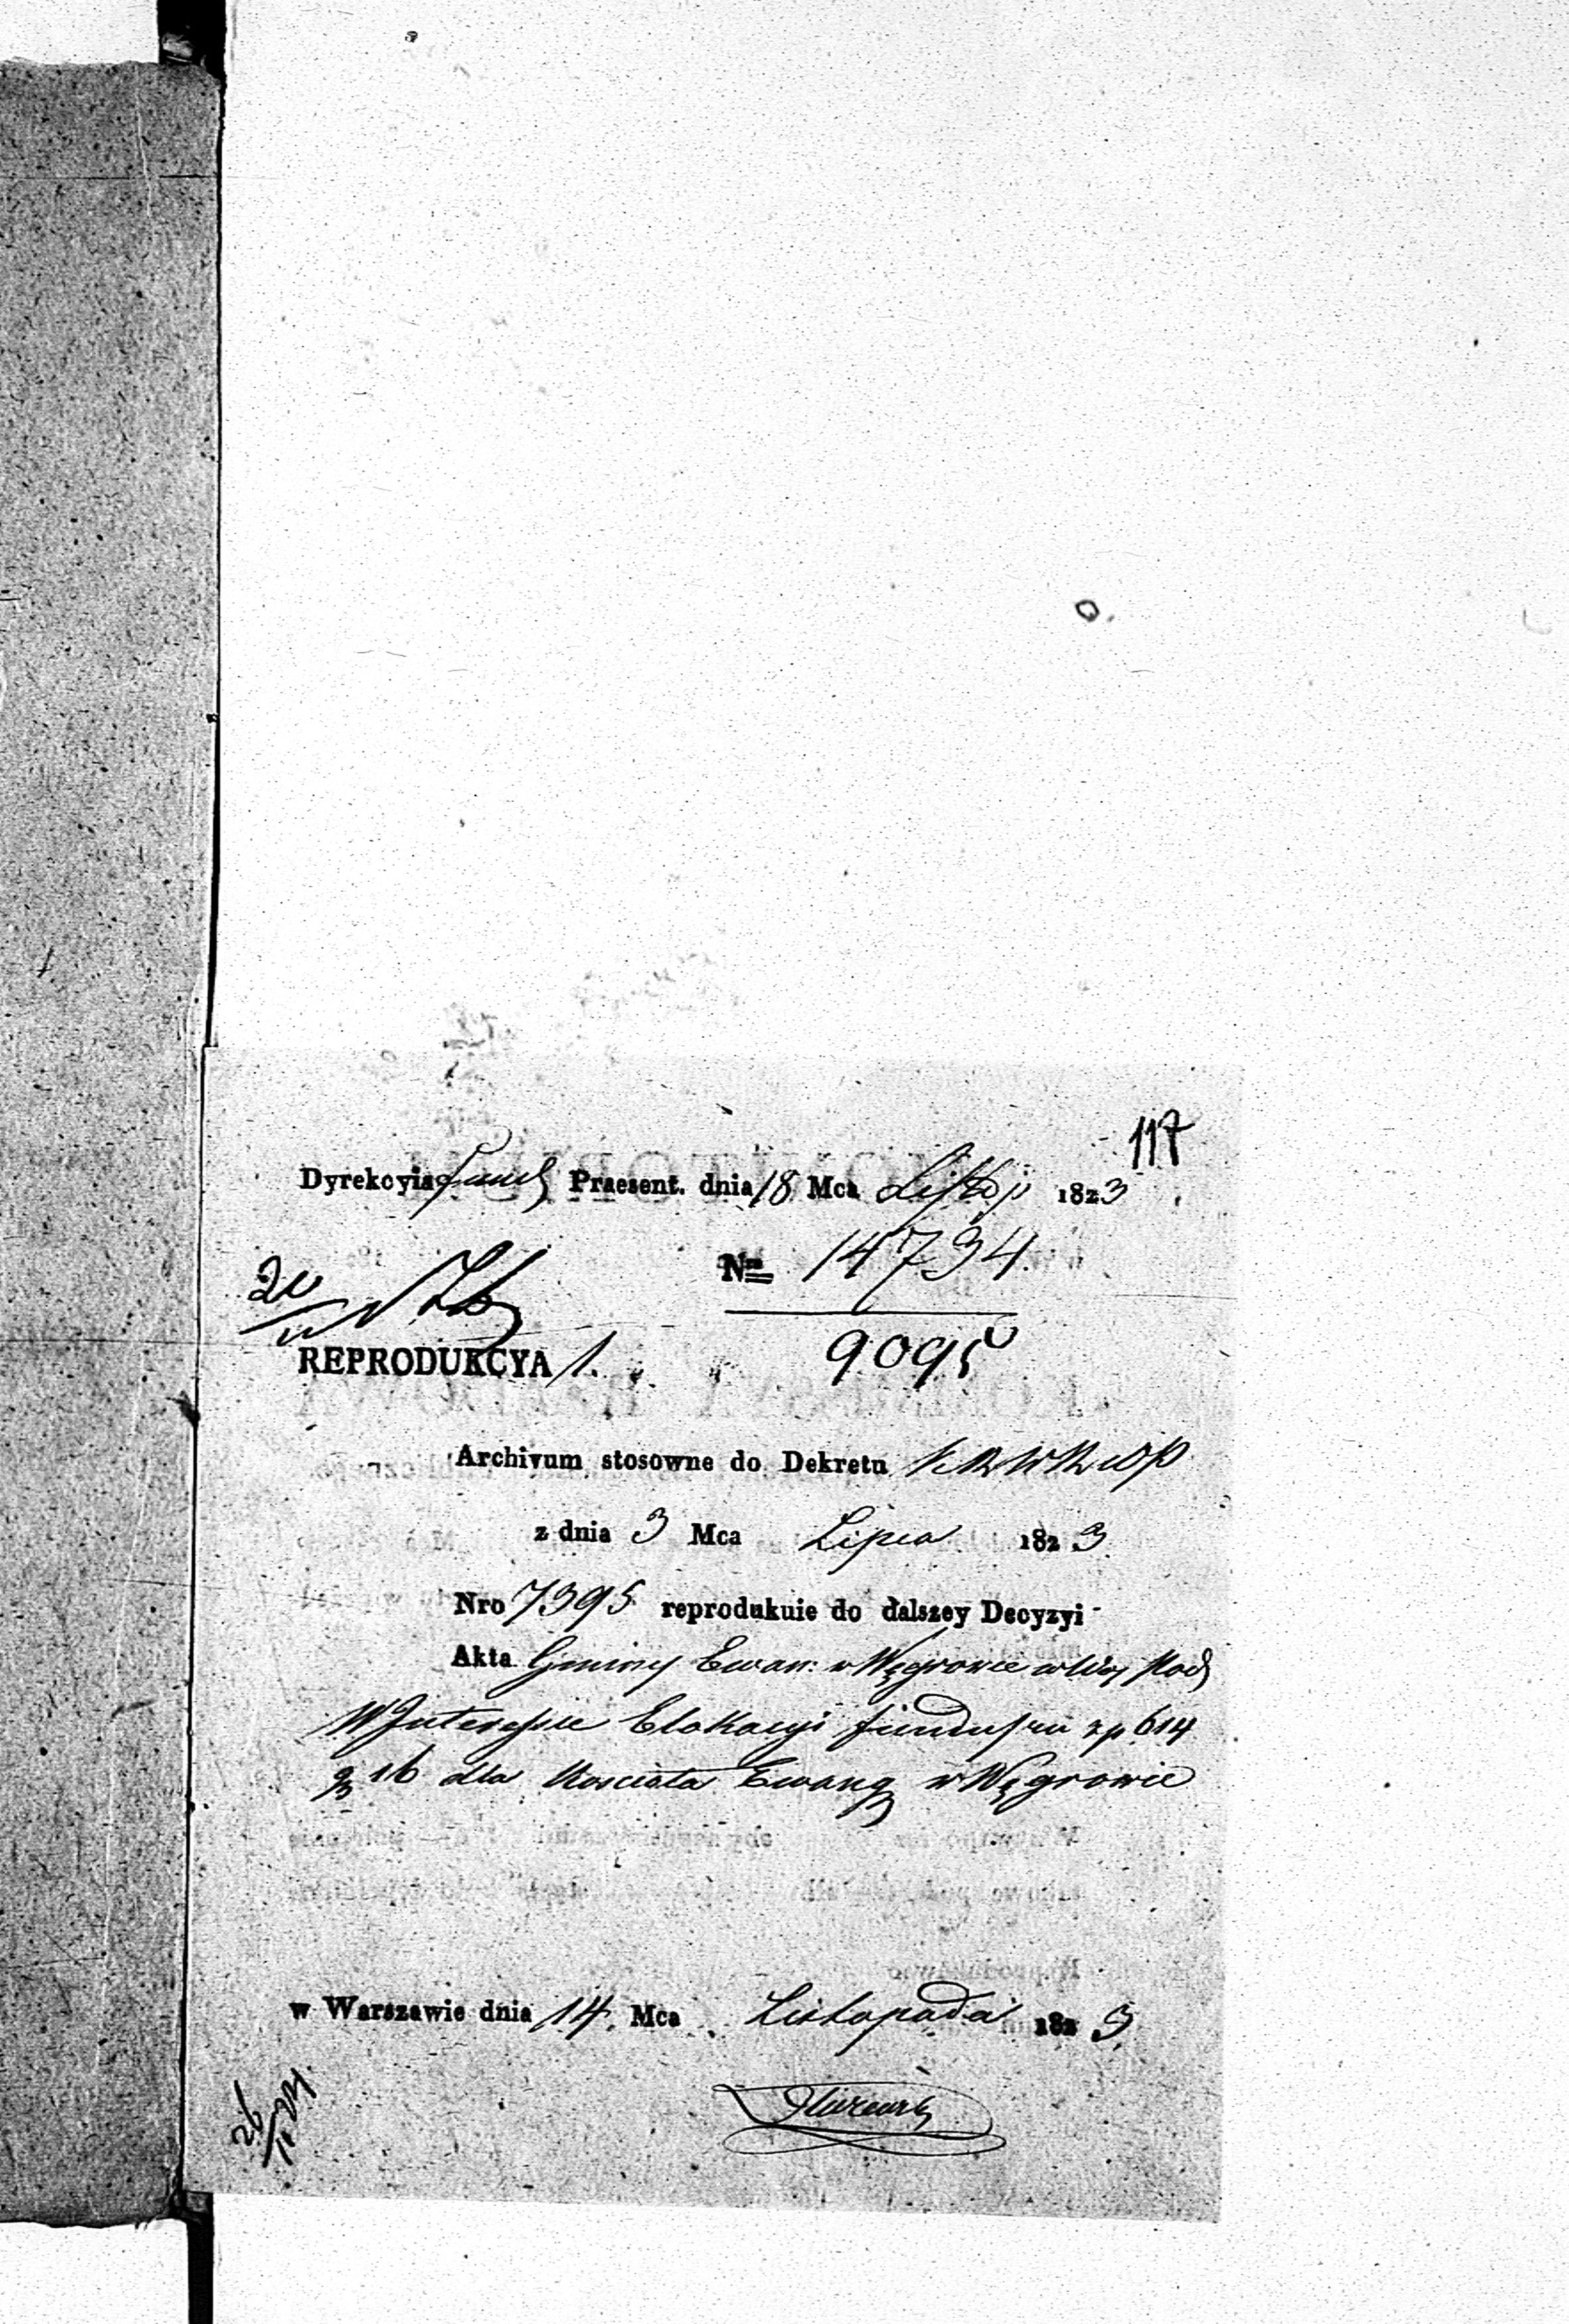 117
Dyrekcyia Praesent. dnia 18 Mca Listop 1823
Nro 14734.
9095
REPRODUKCYA 1.
Archivum stosowne do Dekretu
z dnia 3 Mca Lipca 1823
Nro 7395 reprodukuie do dalszey Decyzyi
Akta Gminy Ewan: w Węgrowie w Woj Pod
W Interessie Elokacyi funduszu zp 614
gr 16 dla Kosciola Ewang w Węgrowie
w Warszawie dnia 14. Mca Listopada 1823.